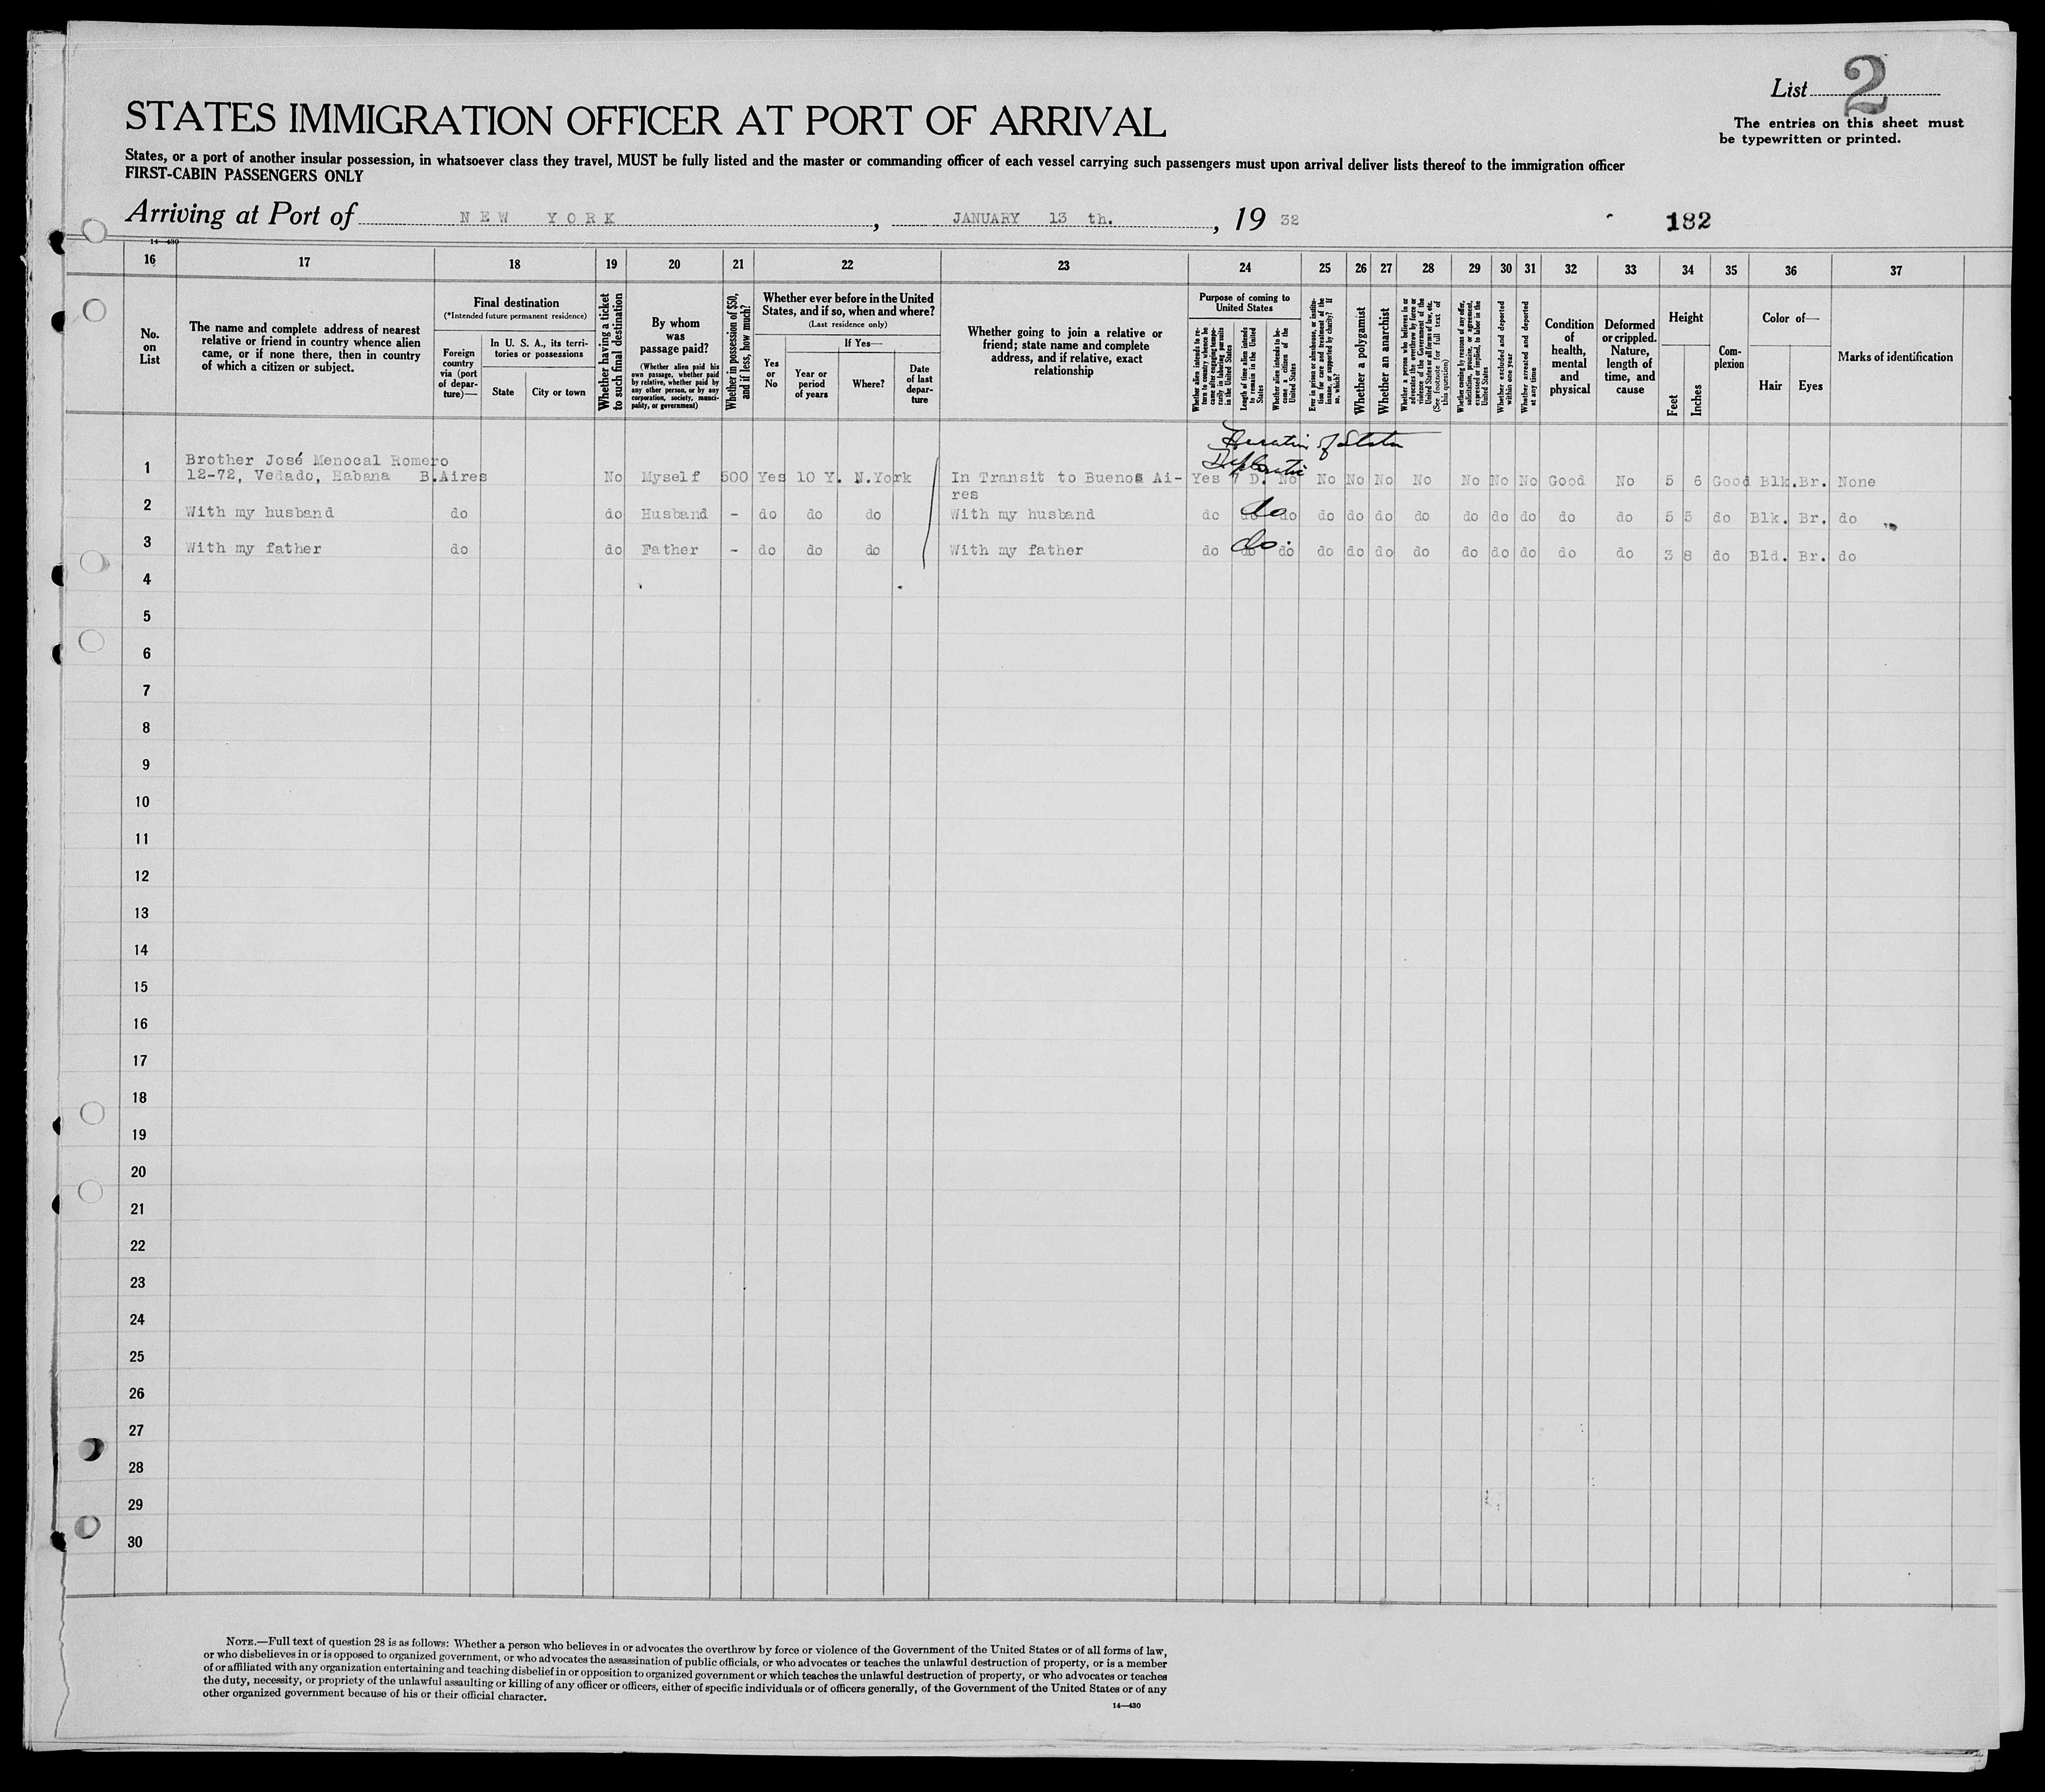 List 2
The entries on this sheet must
be typewritten or printed.
STATES IMMIGRATION OFFICER AT PORT OF ARRIVAL
States, or a port of another insular possession, in whatsoever class they travel, MUST be fully listed and the master or commanding officer of each vessel carrying such passengers must upon arrival deliver lists thereof to the immigration officer
FIRST-CABIN PASSENGERS ONLY
Arriving at Port of NEW YORK, JANUARY 13 th., 19 32
182
14—430
16 17 18 19 20 21 22 23 24 25 26 27 28 29 30 31 32 33 34 35 36 37
No.
on
List
The name and complete address of nearest
relative or friend in country whence alien
came, or if none there, then in country
of which a citizen or subject.
Final destination
(*Intended future permanent residence)
Foreign
country
via (port
of depar-
ture)—
In U. S. A., its terri-
tories or possessions
State
City or town
Whether having a ticket
to such final destination
By whom
was
passage paid?
(Whether alien paid his
own passage, whether paid
by relative, whether paid by
any other person, or by any
corporation, society, munici-
pality, or government)
Whether in possession of $50,
and if less, how much?
Whether ever before in the United
States, and if so, when and where?
(Last residence only)
Yes
or
No
If Yes—
Year or
period
of years
Where?
Date
of last
depar-
ture
Whether going to join a relative or
friend; state name and complete
address, and if relative, exact
relationship
Purpose of coming to
United States
Whether alien intends to re-
turn to country whence he
came after engaging tempo-
rarily in laboring pursuits
in the United States
Length of time alien intends
to remain in the United
States
Whether alien intends to be-
come a citizen of the
United States
Ever in prison or almshouse, or institu-
tion for care and treatment of the
insane, or supported by charity? If
so, which?
Whether a polygamist
Whether an anarchist
Whether a person who believes in or
advocates the overthrow by force or
violence of the Government of the
United States or all forms of law, etc.
(See footnote for full text of
this question)
Whether coming by reasons of any offer,
solicitation, promise, or agreement,
expressed or implied, to labor in the
United States
Whether excluded and deported
within one year
Whether arrested and deported
at any time
Condition
of
health,
mental
and
physical
Deformed
or crippled.
Nature,
length of
time, and
cause
Height
Feet
Inches
Com-
plexion
Color of—
Hair
Eyes
Marks of identification
of State
1 Brother José Menocal Romero
12-72, Vedado, Habana B.Aires No Myself 500 Yes 10 Y. N.York In Transit to Buenos Ai- Yes 7 D. No No No No No No No No Good No 5 6 Good Blk. Br. None
res
2 With my husband do do Husband - do do do With my husband do do do do do do do do do do do do 5 5 do Blk. Br. do
do
3 With my father do do Father - do do do With my father do do do do do do do do do do do do 3 8 do Bld. Br. do
do.
4
5
6
7
8
9
10
11
12
13
14
15
16
17
18
19
20
21
22
23
24
25
26
27
28
29
30
NOTE.—Full text of question 28 is as follows: Whether a person who believes in or advocates the overthrow by force or violence of the Government of the United States or of all forms of law,
or who disbelieves in or is opposed to organized government, or who advocates the assassination of public officials, or who advocates or teaches the unlawful destruction of property, or is a member
of or affiliated with any organization entertaining and teaching disbelief in or opposition to organized government or which teaches the unlawful destruction of property, or who advocates or teaches
the duty, necessity, or propriety of the unlawful assaulting or killing of any officer or officers, either of specific individuals or of officers generally, of the Government of the United States or of any
other organized government because of his or their official character.
14—430